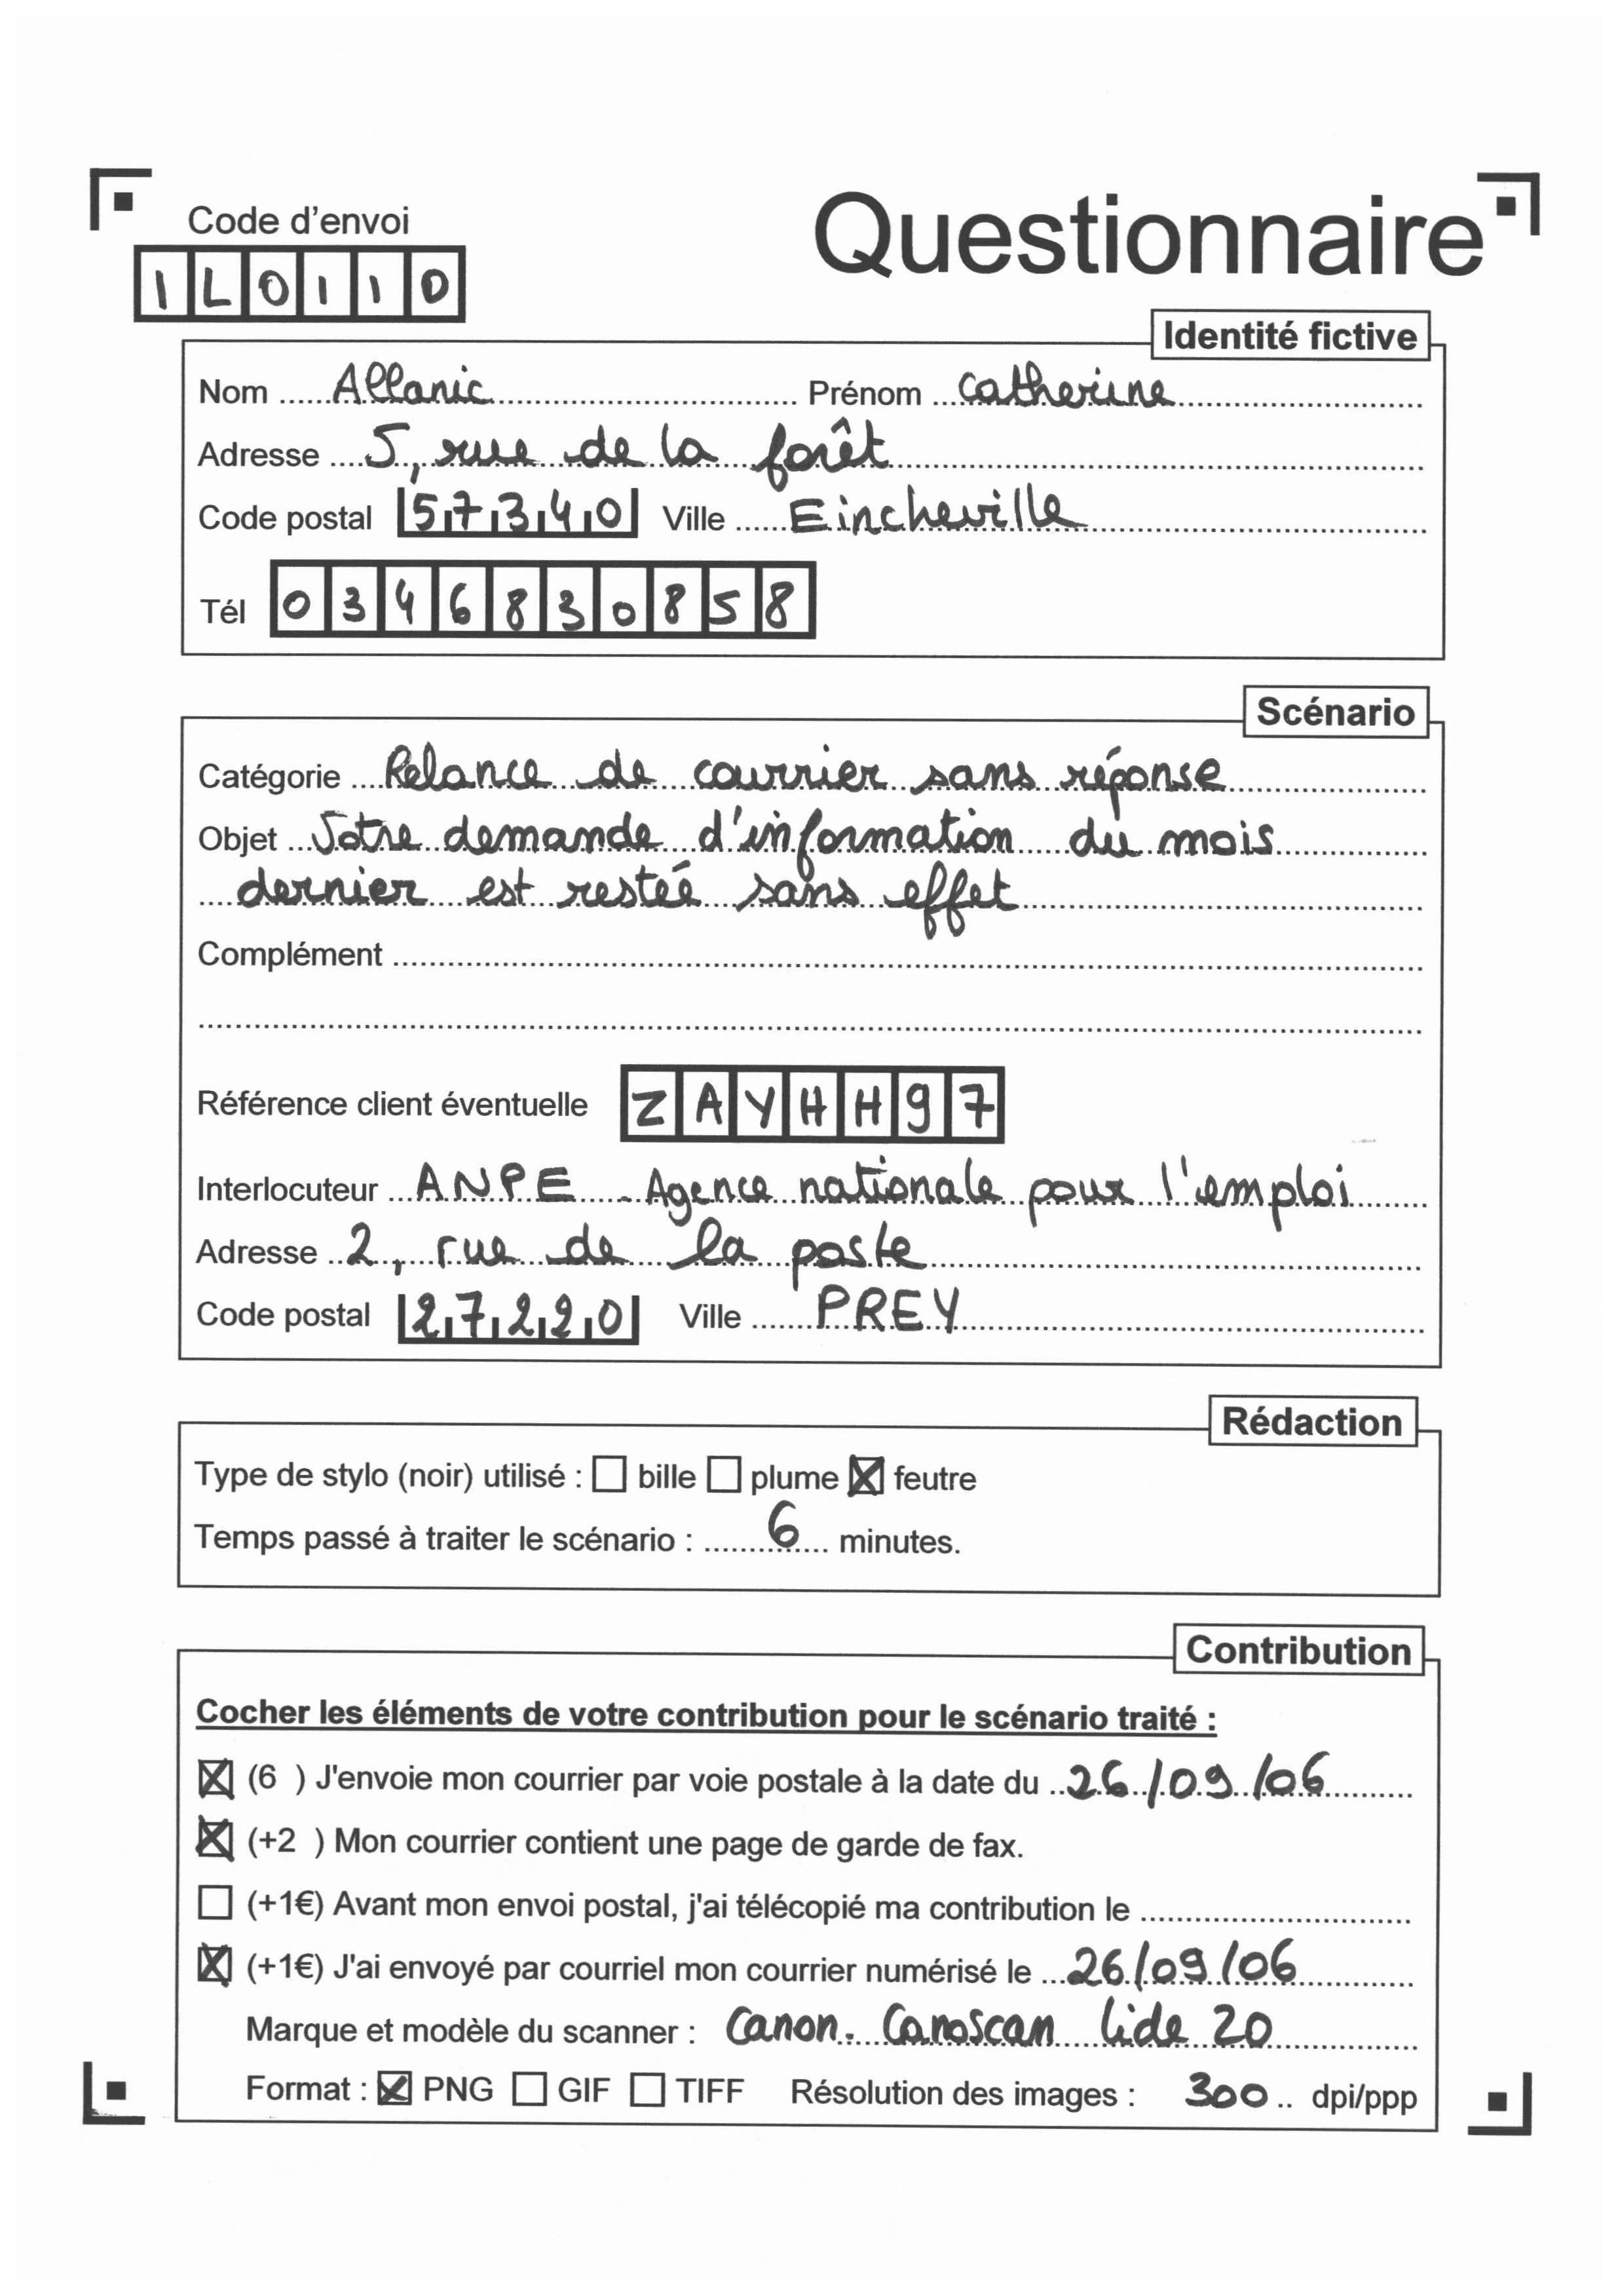 Code d'envoi
Questionnaire
1L0110
Identité fictive
Nom Allanic Prénom Catherine
Adresse 5, rue de la forêt
Code postal 57340 Ville Eincheville
Tél 0346830858
Scénario
Catégorie Relance de courrier sans réponse
Objet Votre demande d'information du mois
dernier est restée sans effet
Complément
Référence client éventuelle ZAYHH97
Interlocuteur ANPE - Agence nationale pour l'emploi
Adresse 2, rue de la poste
Code postal 27220 Ville PREY
Rédaction
Type de stylo (noir) utilisé : ☐ bille ☐ plume ☒ feutre
Temps passé à traiter le scénario : 6 minutes.
Contribution
Cocher les éléments de votre contribution pour le scénario traité :
☒ (6 ) J'envoie mon courrier par voie postale à la date du 26/09/06
☒ (+2 ) Mon courrier contient une page de garde de fax.
☐ (+1€) Avant mon envoi postal, j'ai télécopié ma contribution le
☒ (+1€) J'ai envoyé par courriel mon courrier numérisé le 26/09/06
Marque et modèle du scanner : Canon. Canoscan lide 20
Format : ☒ PNG ☐ GIF ☐ TIFF Résolution des images : 300 dpi/ppp